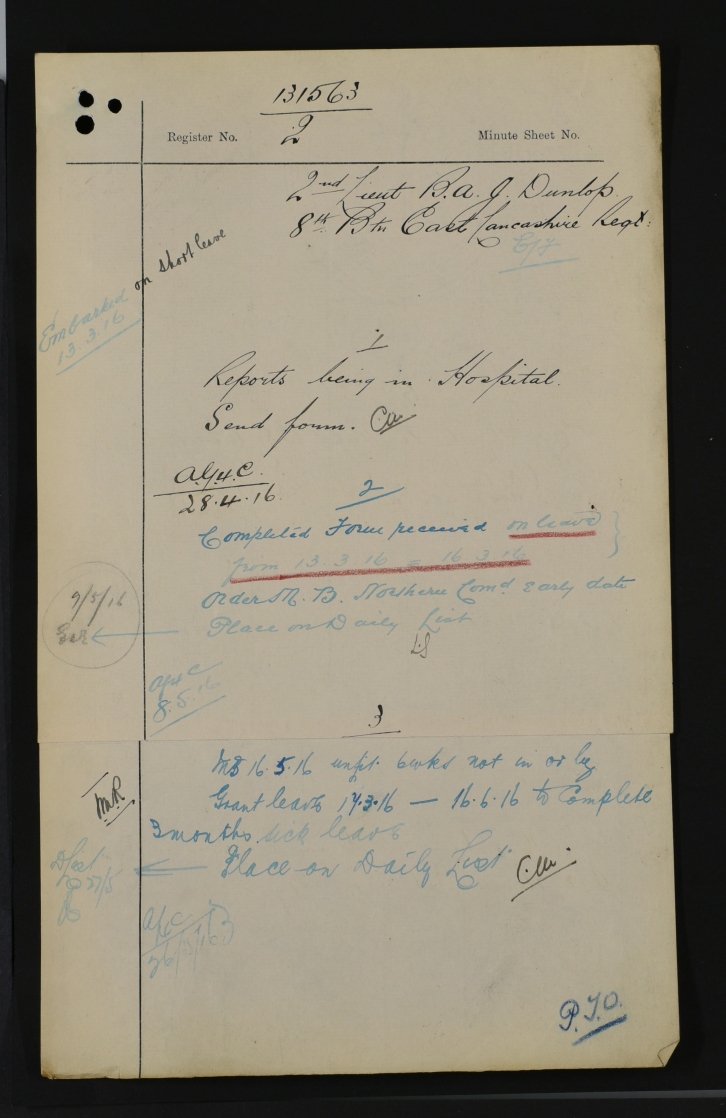 131563
2
Register No.
Minute Sheet No.
2nd Lieut B. A. J. Dunlop.
8th Btn East Lancashire Regt:
on short leave
Embarked
13.3.16
1
Reports being in Hospital.
Send form. Ca
A.G.4.C.
28.4.16.
2
Completed Form received on leave
from 13 3 16 - 16.3.16
Order M. B. Northern Comd early date
9/5/16
Place on Daily List
LS
AG4C
8.5.16
3
MB 16.5.16 unfit 6wks not in or by
MR
Grant leave 17.3.16 — 16.6.16 to Complete
3 months sick leave
D List
27/5
Place on Daily List
26/5/16
P.T.O.